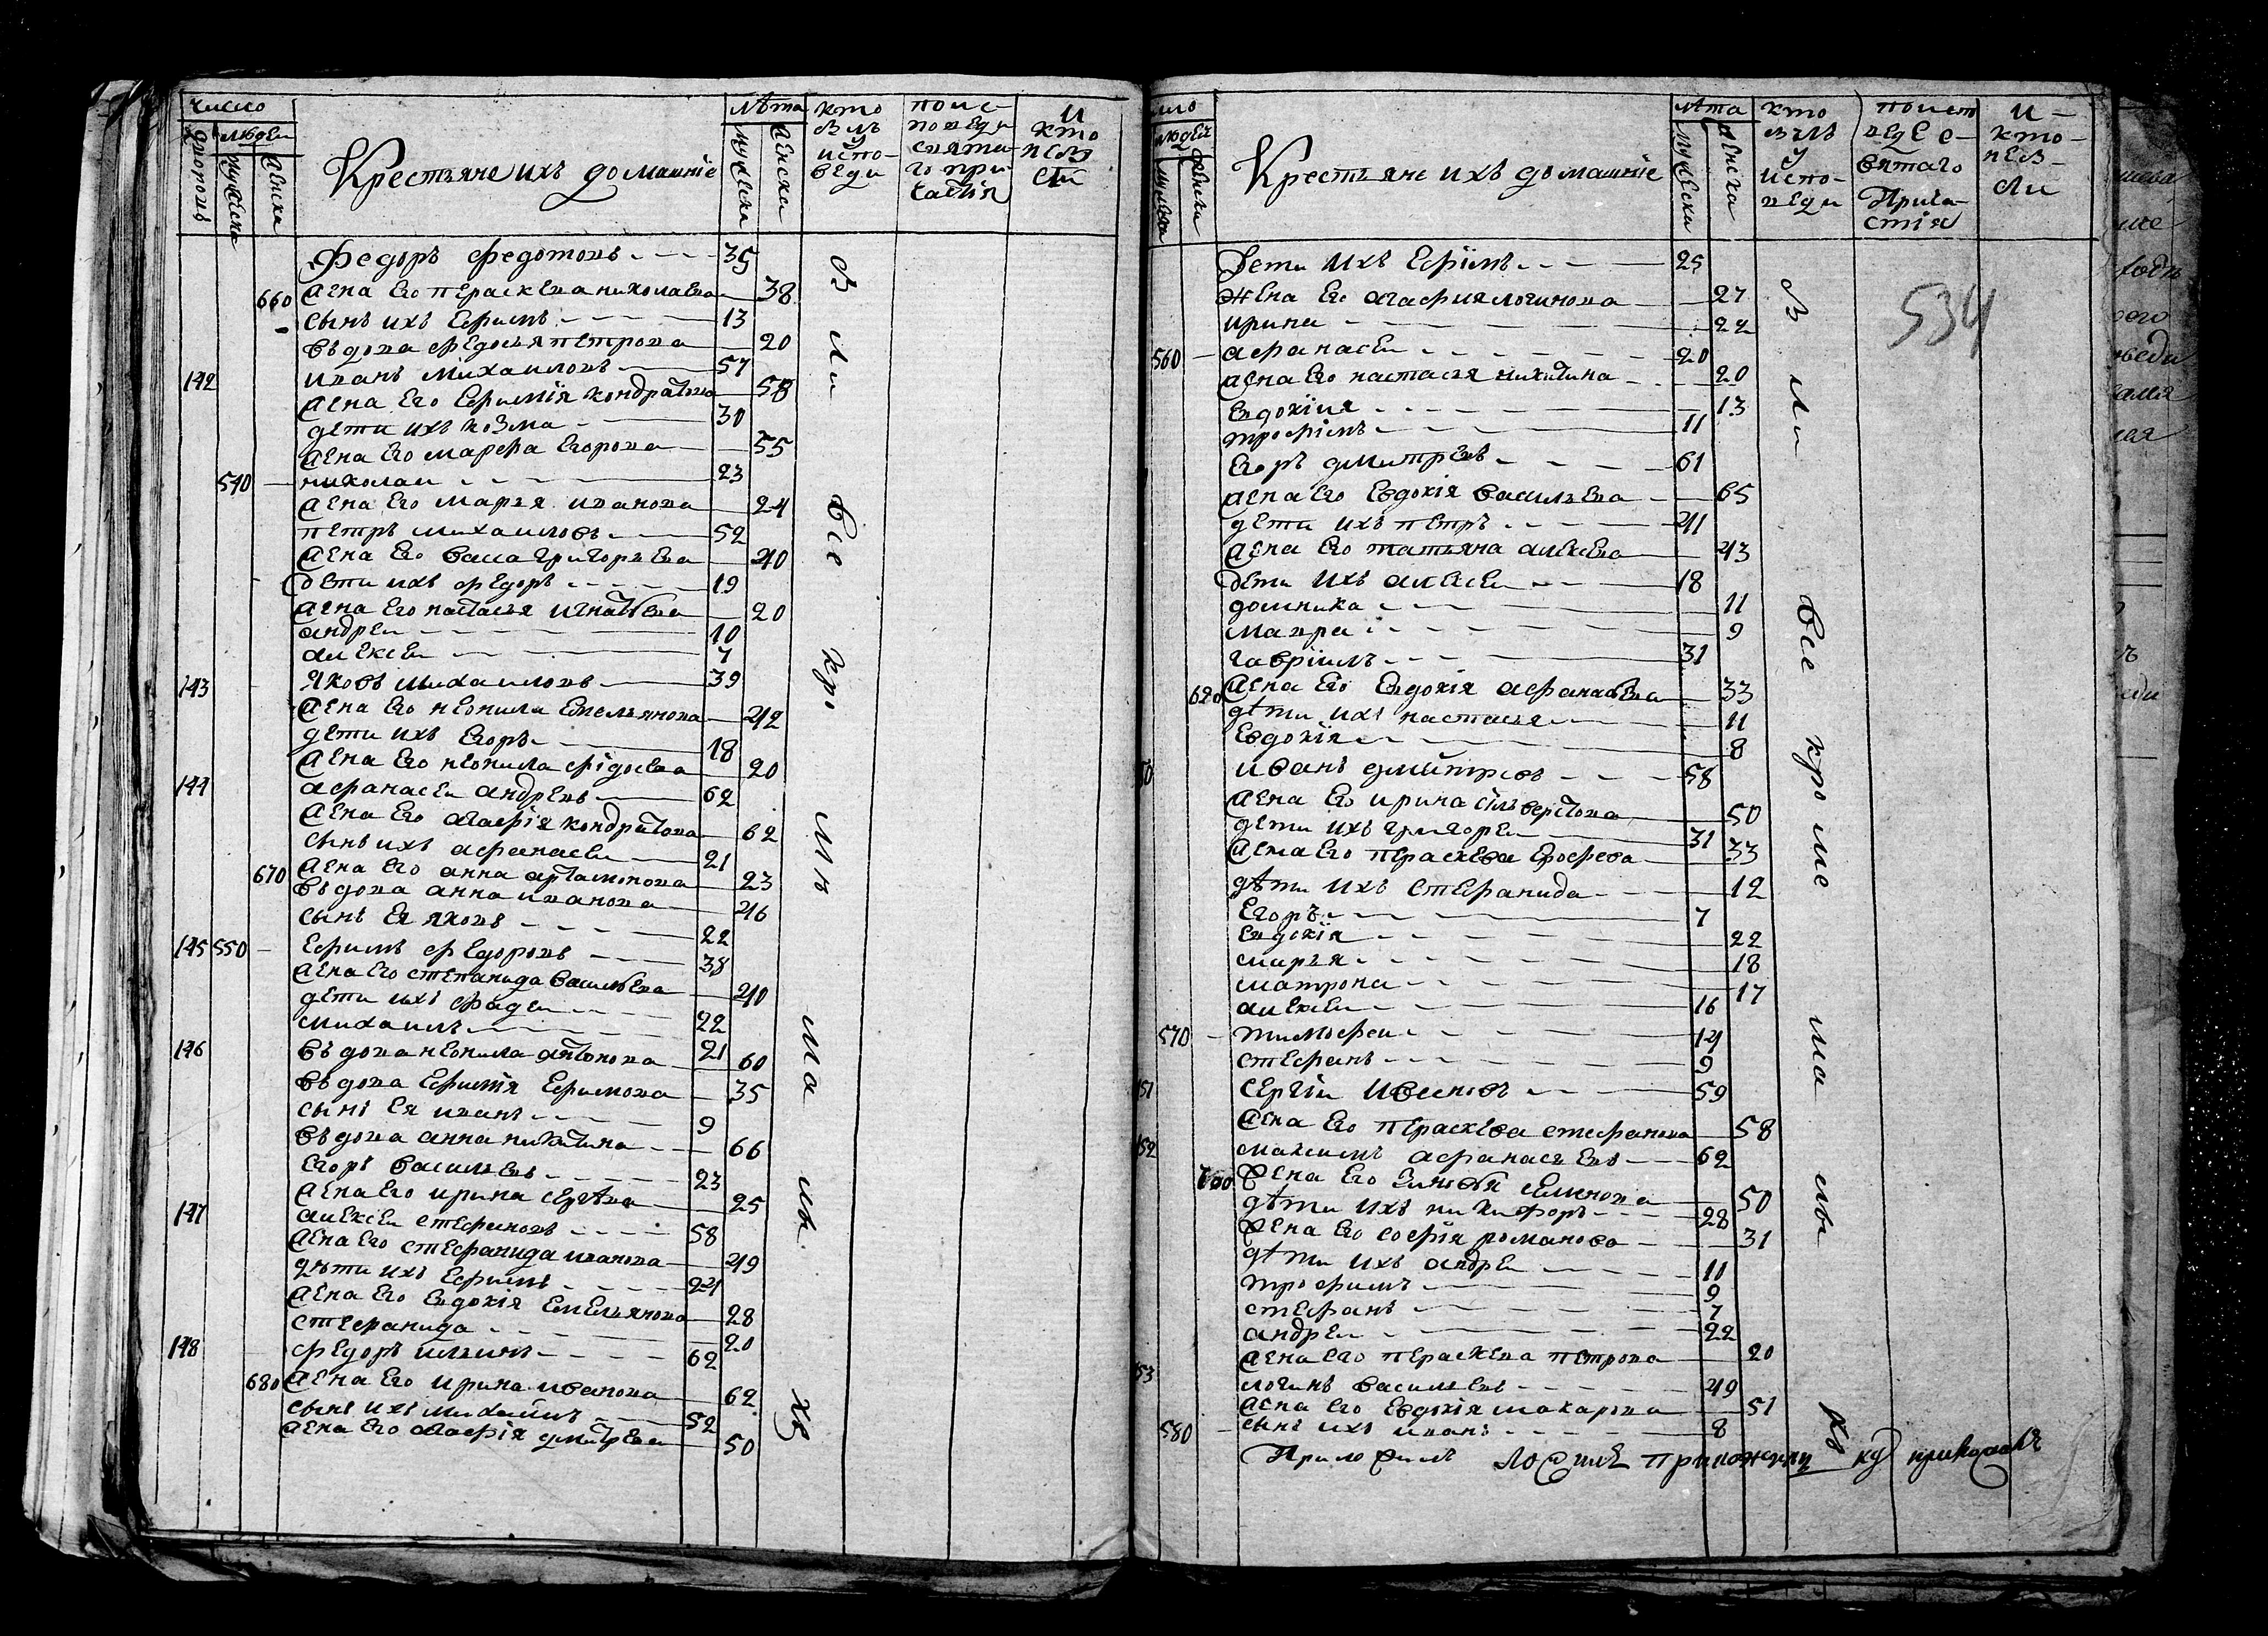 число
людеи
дворовъ
мужеска
женска
Крестьяне ихъ домашніе
лѣта
мужеска
женска
кто
былъ
у
испо-
веди
поис-
поведи
свята-
го при
частія
И
кто
небы
лъ
Федоръ федотовъ 35
660 жена Его пераскева николаева 38
сынъ ихъ Ефимъ 13
въдова федосья петрова 20
142 иванъ михаиловъ 57
жена Его Ефимія кондратова 58
дети ихъ козма 30
жена Его марфа Егорова 55
540 николаи 23
жена Его марья иванова 24
петръ михаиловъ 52
жена Его васса григорьева 40
дети ихъ федоръ 19
жена Его настасья игнатьева 20
андреи 10
алексеи 7
143 яковъ михаиловъ 39
жена Его неонила Емельянова 42
дети ихъ Егоръ 18
жена Его неонила фідосева 20
144 афанасеи андревъ 62
жена Его агафія кондратова 62
сынъ ихъ афанасеи 21
670 жена Его анна артамонова 23
въдова анна иванова 46
сынъ Ея яковъ 22
145 550 Ефимъ федоровъ 38
жена Его степанида васильева 40
дети ихъ фадеи 22
михаилъ 21
146 въдова неонила антонова 60
въдова Ефимія Ефимова 35
сынъ Ея иванъ 9
въдова анна никитина 66
Егоръ васильевъ 23
жена Его ирина сергѣва 25
147 алексеи стефановъ 58
жена Его стефанида иванова 49
дѣти ихъ Ефимъ 24
жена Его Евдокія Емельянова 28
стефанида 20
148 федоръ ильинъ 62
680 жена Его ирина иванова 62
сынъ ихъ михаилъ 52
жена Его агафія дмитрева 50
Были все кроме малыхъ
ло
людеи
мужеска
женска
Крестьяне ихъ домашніе
лѣта
мужеска
женска
кто
былъ
у
испо-
веди
поисп
веде с-
вятаго
Прича-
стія
И-
кто-
неб-
ли
534
Дети ихъ Ефімъ 25
жена Его агафия логинова 27
ирина 22
560 афанасеи 20
жена Его настасья никитина 20
Евдокіия 13
трофімъ 11
Егоръ дмитревъ 61
жена Его Евдокія васильева 65
дети ихъ петръ 41
жена Его татьяна алексева 43
дети ихъ алексеи 18
домника 11
мавра 9
гавріилъ 31
690 жена Его Евдокія афанасьева 33
дѣти ихъ настасья 11
Евдокія 8
50 иванъ дмитревъ 58
жена Его ирина сільверстова 50
дети ихъ григореи 31
жена Его пераскева Ерофева 33
дѣти ихъ стефанида 12
Егоръ 7
Евдокія 22
марья 18
матрона 17
алексеи 16
570 тимофеи 14
стефанъ 9
151 Сергіи Ивановъ 59
жена Его пераскева стефанова 58
152 максимъ афанасьевъ 62
700 жена Его Зиновья семенова 50
дѣти ихъ никифоръ 28
жена Его софія романова 31
дѣти ихъ андреи 11
трофимъ 9
стефанъ 7
андреи 22
жена его пераскева петрова 20
153 логинъ васильевъ 49
жена Его Евдокія макарова 51
580 сынъ ихъ иванъ 8
Были все кроме малыхъ